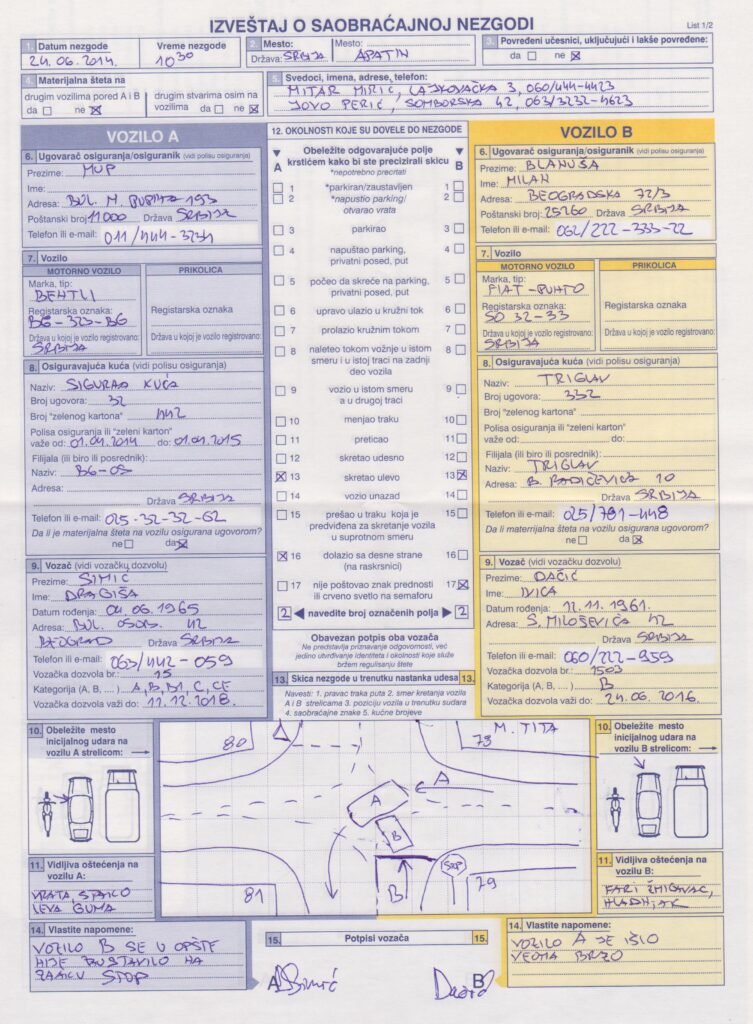 IZVEŠTAJ O SAOBRAĆAJNOJ NEZGODI
List 1/2
1. Datum nezgode Vreme nezgode
24.06.2014. 10 30
2. Mesto: Mesto:
Država: SRBIJA APATIN
3. Povređeni učesnici, uključujući i lakše povređene:
da ne X
4. Materijalna šteta na
drugim vozilima pored A i B drugim stvarima osim na vozilima
da ne X da ne X
5. Svedoci, imena, adrese, telefon:
MITAR MIRIĆ, LAJKOVAČKA 3, 060/444-4423
JOVO PERIĆ, SOMBORSKA 42, 063/3232-4623
VOZILO A
6. Ugovarač osiguranja/osiguranik (vidi polisu osiguranja)
Prezime: MUP
Ime:
Adresa: BUL. M. PUPINA 193
Poštanski broj: 11000 Država SRBIJA
Telefon ili e-mail: 011/444-3234
7. Vozilo
MOTORNO VOZILO PRIKOLICA
Marka, tip:
BENTLI
Registarska oznaka: Registarska oznaka
BG-323-BG
Država u kojoj je vozilo registrovano: Država u kojoj je vozilo registrovano:
SRBIJA
8. Osiguravajuća kuća (vidi polisu osiguranja)
Naziv: SIGURNA KUĆA
Broj ugovora: 32
Broj "zelenog kartona" 442
Polisa osiguranja ili "zeleni karton"
važe od: 01.04.2014 do: 01.04.2015
Filijala (ili biro ili posrednik):
Naziv: BG-05
Adresa:
Država SRBIJA
Telefon ili e-mail: 025-32-32-62
Da li je materijalna šteta na vozilu osigurana ugovorom?
ne da X
9. Vozač (vidi vozačku dozvolu)
Prezime: SIMIĆ
Ime: DRAGIŠA
Datum rođenja: 04.06.1965
Adresa: BUL. OSLOB. 42
BEOGRAD Država SRBIJA
Telefon ili e-mail: 063/442-059
Vozačka dozvola br.: 15
Kategorija (A, B, .... ) A, B, B1, C, CE
Vozačka dozvola važi do: 11.12.2018.
12. OKOLNOSTI KOJE SU DOVELE DO NEZGODE
Obeležite odgovarajuće polje
krstićem kako bi ste precizirali skicu
*nepotrebno precrtati
A B
1 *parkiran/zaustavljen 1
2 *napustio parking/ 2
otvarao vrata
3 parkirao 3
4 napuštao parking, 4
privatni posed, put
5 počeo da skreće na parking, 5
privatni posed, put
6 upravo ulazio u kružni tok 6
7 prolazio kružnim tokom 7
8 naleteo tokom vožnje u istom 8
smeru i u istoj traci na zadnji
deo vozila
9 vozio u istom smeru 9
a u drugoj traci
10 menjao traku 10
11 preticao 11
12 skretao udesno 12
X 13 skretao ulevo 13 X
14 vozio unazad 14
15 prešao u traku koja je 15
predviđena za skretanje vozila
u suprotnom smeru
X 16 dolazio sa desne strane 16
(na raskrsnici)
17 nije poštovao znak prednosti 17 X
ili crveno svetlo na semaforu
2 navedite broj označenih polja 2
Obavezan potpis oba vozača
Ne predstavlja priznavanje odgovornosti, već
jedino utvrđivanje identiteta i okolnosti koje služe
bržem regulisanju štete
VOZILO B
6. Ugovarač osiguranja/osiguranik (vidi polisu osiguranja)
Prezime: BLANUŠA
Ime: MILAN
Adresa: BEOGRADSKA 72/3
Poštanski broj: 25260 Država SRBIJA
Telefon ili e-mail: 062/222-333-22
7. Vozilo
MOTORNO VOZILO PRIKOLICA
Marka, tip:
FIAT-PUNTO
Registarska oznaka: Registarska oznaka
SO 32-33
Država u kojoj je vozilo registrovano: Država u kojoj je vozilo registrovano:
SRBIJA
8. Osiguravajuća kuća (vidi polisu osiguranja)
Naziv: TRIGLAV
Broj ugovora: 332
Broj "zelenog kartona"
Polisa osiguranja ili "zeleni karton"
važe od: do:
Filijala (ili biro ili posrednik):
Naziv: TRIGLAV
Adresa: B. RADIČEVIĆA 10
Država SRBIJA
Telefon ili e-mail: 025/781-448
Da li materrijalna šteta na vozilu osigurana ugovorom?
ne da X
9. Vozač (vidi vozačku dozvolu)
Prezime: DAČIĆ
Ime: IVICA
Datum rođenja: 12.11.1961.
Adresa: S. MILOŠEVIĆA 42
Država SRBIJA
Telefon ili e-mail: 060/222-959
Vozačka dozvola br.: 1503
Kategorija (A, B, .... ) B
Vozačka dozvola važi do: 24.06.2016.
13. Skica nezgode u trenutku nastanka udesa 13.
Navesti: 1. pravac traka puta 2. smer kretanja vozila
A i B strelicama 3. poziciju vozila u trenutku sudara
4. saobraćajne znake 5. kućne brojeve
10. Obeležite mesto
inicijalnog udara na
vozilu A strelicom:
80 M. TITA
73
A
A
B
STOP
B
81 79
10. Obeležite mesto
inicijalnog udara na
vozilu B strelicom:
11. Vidljiva oštećenja na
vozilu A:
VRATA, STAKLO
LEVA GUMA
11. Vidljiva oštećenja na
vozilu B:
FARI ŽMIGAVAC,
HLADNJAK
14. Vlastite napomene:
VOZILO B SE U OPŠTE
NIJE ZUSTAVILO NA
ZNAKU STOP
15. Potpisi vozača 15.
A Simić Dačić B
14. Vlastite napomene:
VOZILO A JE IŠLO
VEOMA BRZO